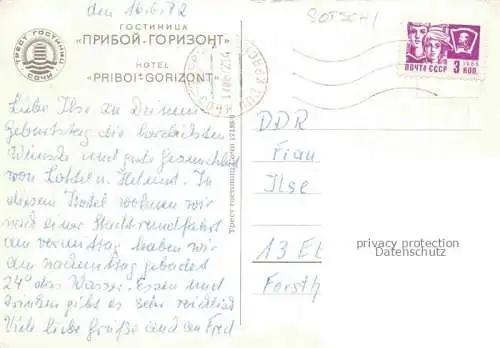 den 16.6.72
SOTSCHI
ГОСТИНИЦА
«ПРИБОЙ-ГОРИЗОНТ»
HOTEL
"PRIBOI-GORIZONT"
ТРЕСТ ГОСТИНИЦ
СОЧИ
1966
ПОЧТА СССР 3 КОП.
Liebe Ilse an Deinem
Geburtstag die herzlichsten
Wünsche und gute Gesundheit
von Lottel u. Helmut. In
diesem Hotel wohnen wir
nach einer Stadtrundfahrt
am vormittag haben wir
am nachmittag gebadet
24° das Wasser. Essen und
trinken gibt es sehr reichlich
Viele liebe Grüße and an Fred
Трест гостиниц Сочи
DDR
Frau
Ilse
13 E
Forsth
privacy protection
Datenschutz